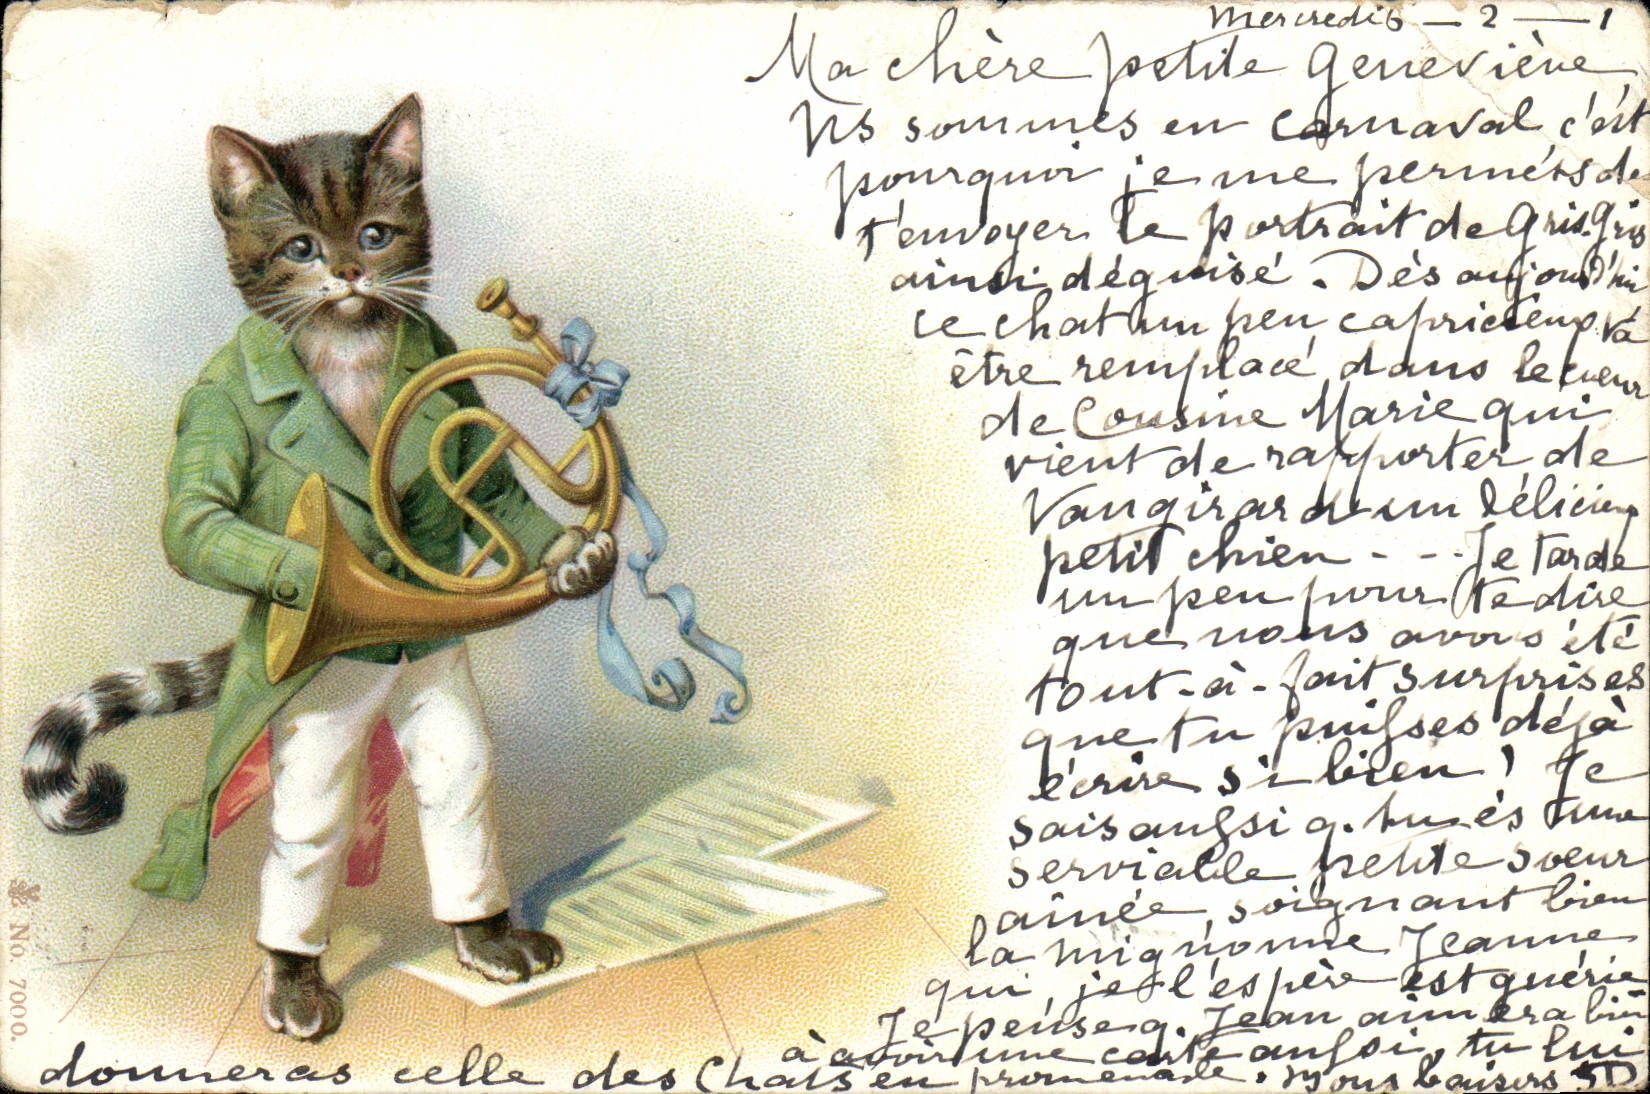 Mercredi 6 — 2 — 1
Ma chère petite Geneviève
Ns sommes en carnaval c'est
pourquoi je me permets de
t'envoyer le portrait de Gris.Gris
ainsi déguisé. Dès aujourd'hui
ce chat un peu capricieux va
être remplacé dans le cœur
de Cousine Marie qui
vient de rapporter de
Vaugirard un délicieux
petit chien - - - Je tarde
un peu pour te dire
que nous avons été
tout-à-fait surprises
que tu puisses déjà
écrire si bien ! Je
sais aussi q. tu és une
serviable petite sœur
ainée, soignant bien
la mignonne Jeanne
qui, je l'espère est guérie
Je pense q. Jean aimera bien
à avoir une carte aussi, tu lui
donneras celle des Chats en promenade. Nous baisers
No. 7000.